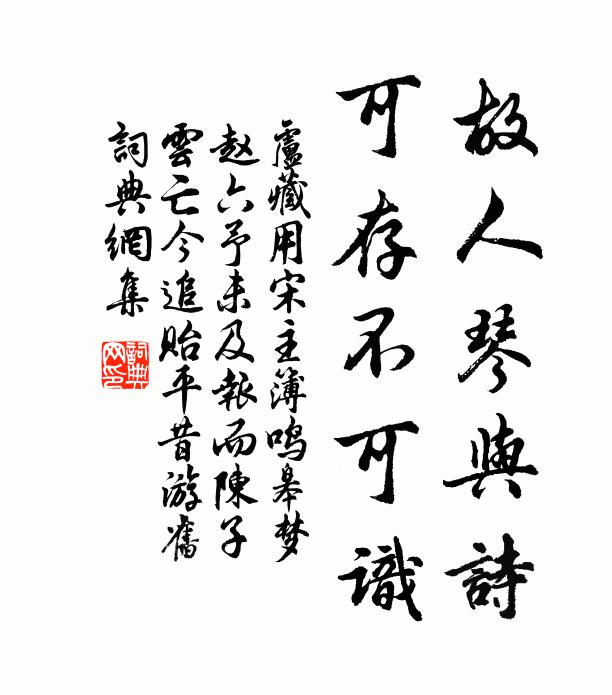 故人琴與詩
可存不可識
盧藏用宋主簿鸣皋梦
赵六予未及報而陳子
雲亡今追貽平昔游舊
詞典網集
詞典
网印